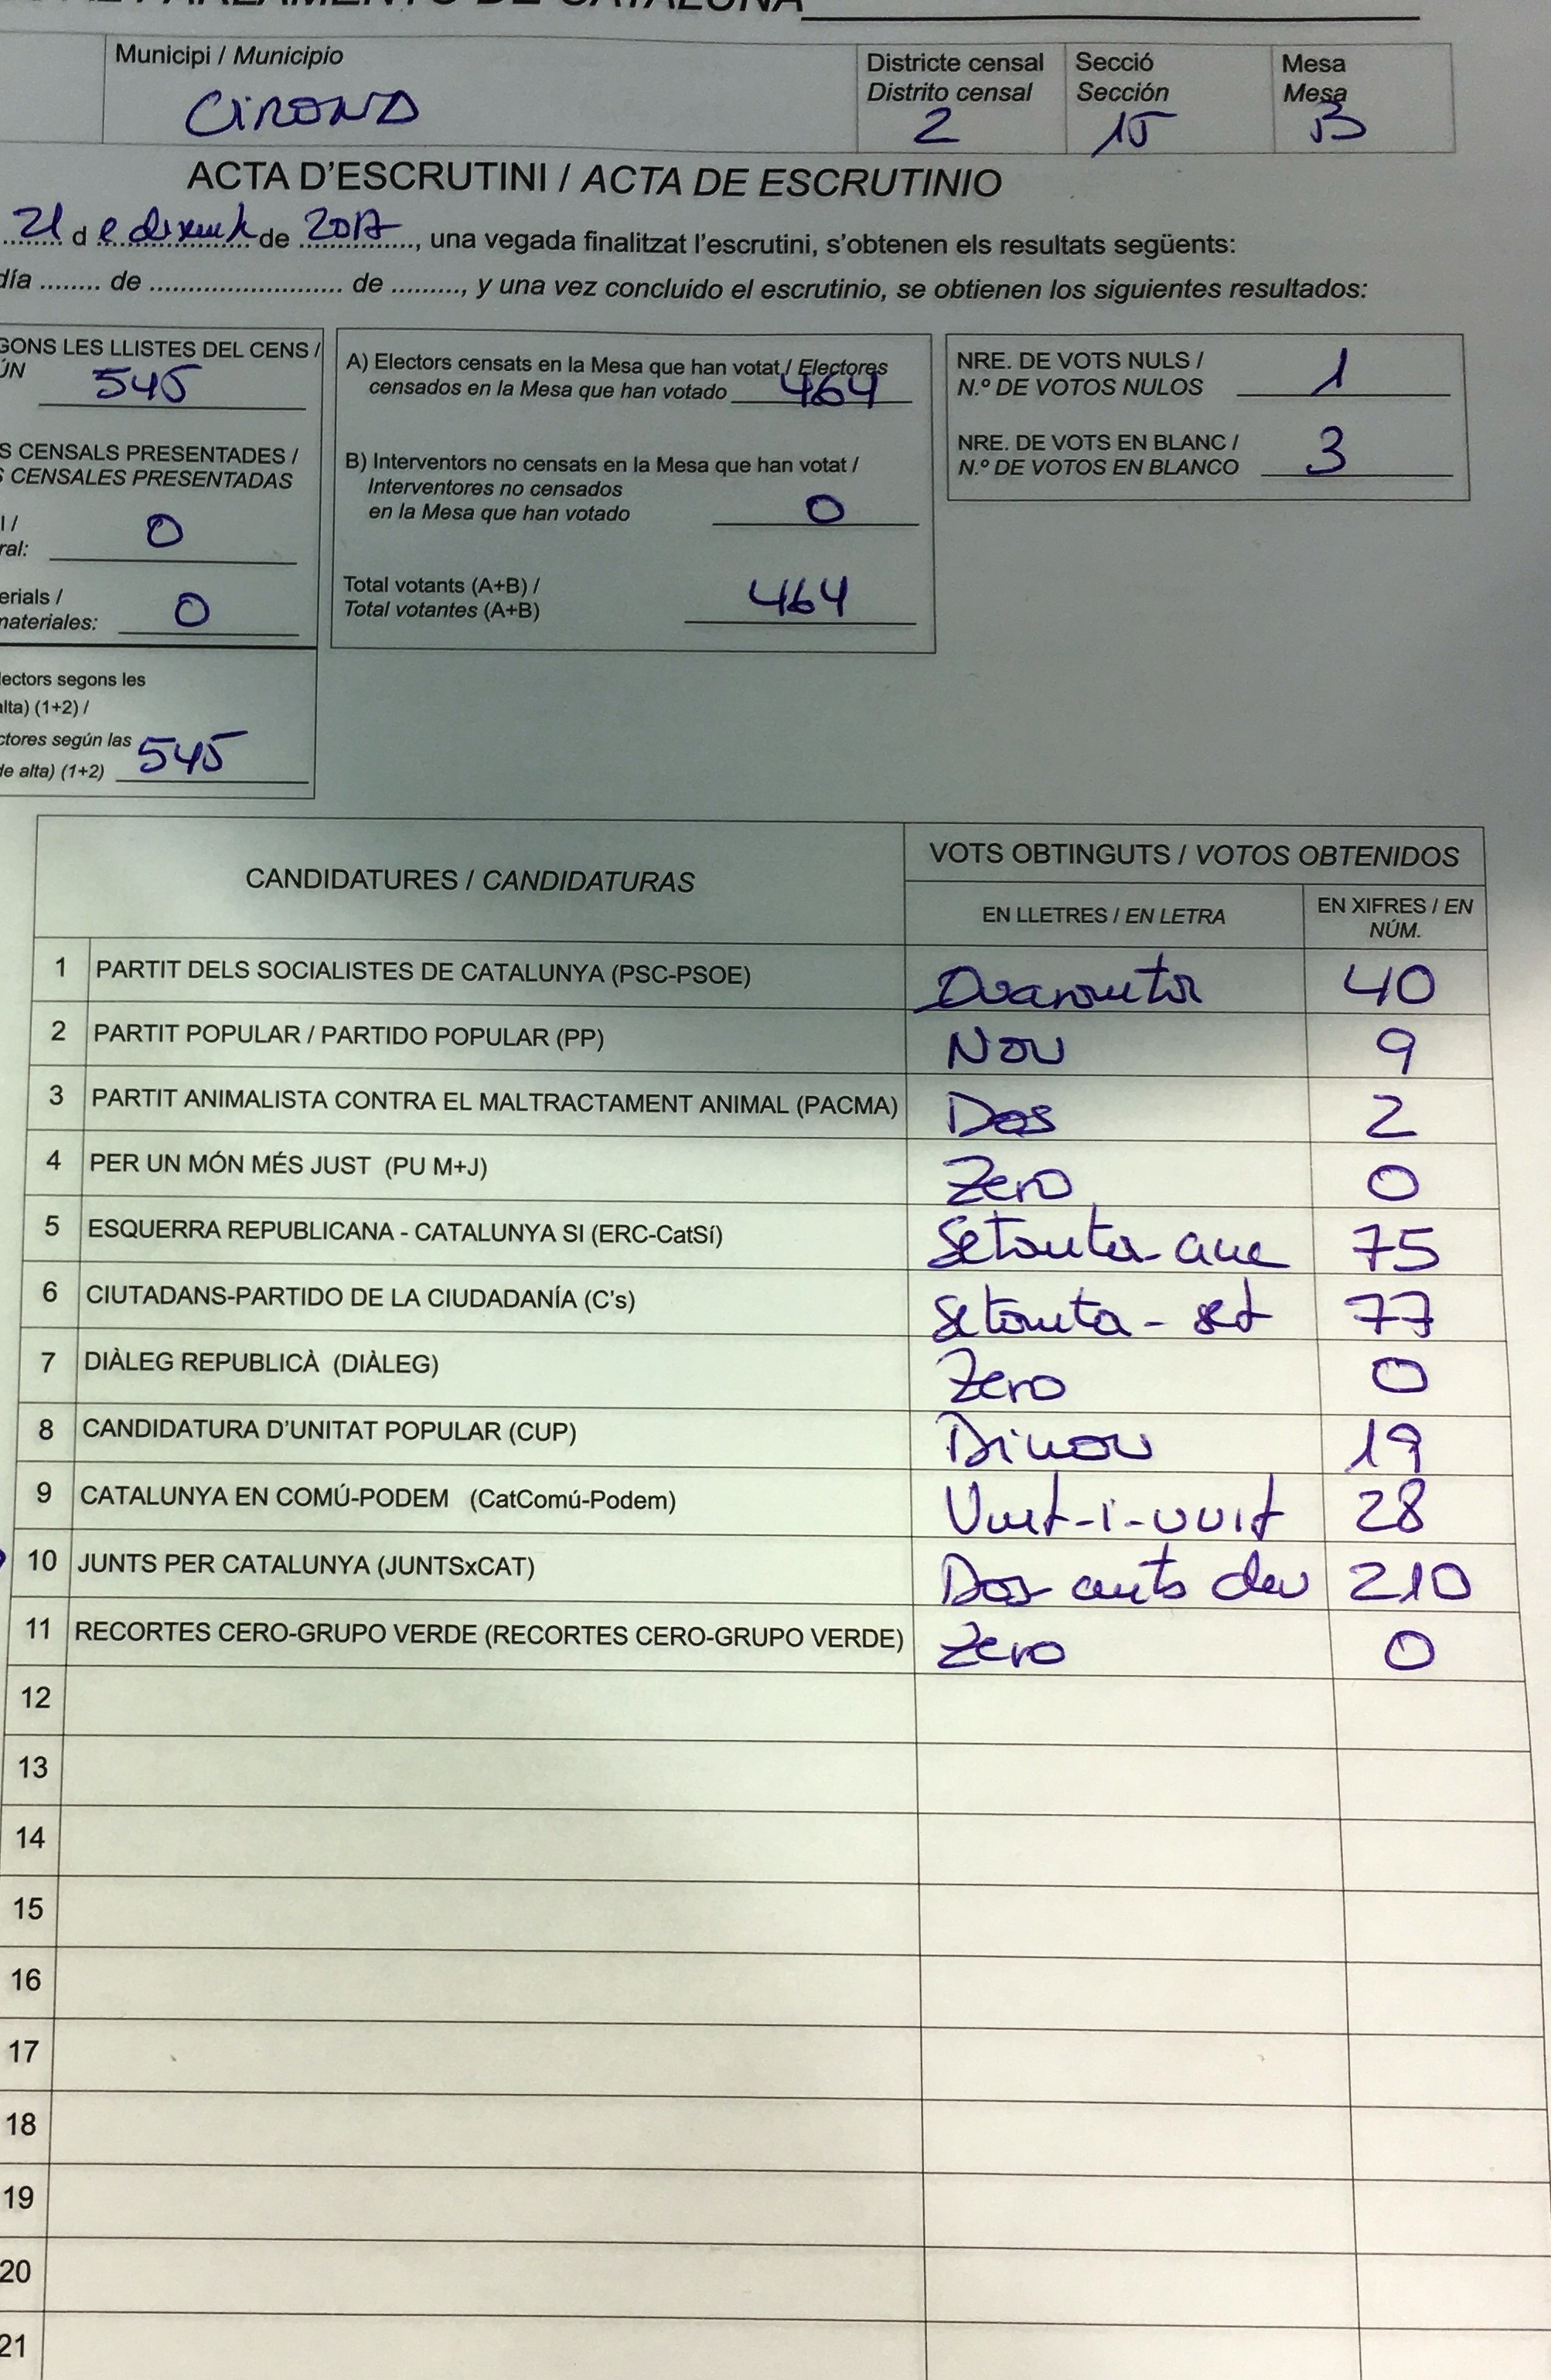 PARLAMENTO DE CATALUÑA
Municipi / Municipio
GIRONA
Districte censal
Distrito censal
2
Secció
Sección
15
Mesa
Mesa
B
ACTA D'ESCRUTINI / ACTA DE ESCRUTINIO
21 de desembre de 2017, una vegada finalitzat l'escrutini, s'obtenen els resultats següents:
día ........ de ........................... de ........., y una vez concluido el escrutinio, se obtienen los siguientes resultados:
GONS LES LLISTES DEL CENS /
ÚN
545
S CENSALS PRESENTADES /
S CENSALES PRESENTADAS
l /
ral: 0
erials /
materiales: 0
lectors segons les
alta) (1+2) /
ctores según las
de alta) (1+2) 545
A) Electors censats en la Mesa que han votat / Electores
censados en la Mesa que han votado 464
B) Interventors no censats en la Mesa que han votat /
Interventores no censados
en la Mesa que han votado 0
Total votants (A+B) /
Total votantes (A+B) 464
NRE. DE VOTS NULS /
N.º DE VOTOS NULOS 1
NRE. DE VOTS EN BLANC /
N.º DE VOTOS EN BLANCO 3
CANDIDATURES / CANDIDATURAS
VOTS OBTINGUTS / VOTOS OBTENIDOS
EN LLETRES / EN LETRA
EN XIFRES / EN
NÚM.
1 PARTIT DELS SOCIALISTES DE CATALUNYA (PSC-PSOE) Quaranta 40
2 PARTIT POPULAR / PARTIDO POPULAR (PP) Nou 9
3 PARTIT ANIMALISTA CONTRA EL MALTRACTAMENT ANIMAL (PACMA) Dos 2
4 PER UN MÓN MÉS JUST (PU M+J) Zero 0
5 ESQUERRA REPUBLICANA - CATALUNYA SI (ERC-CatSí) Setanta-cinc 75
6 CIUTADANS-PARTIDO DE LA CIUDADANÍA (C's) Setanta-set 77
7 DIÀLEG REPUBLICÀ (DIÀLEG) Zero 0
8 CANDIDATURA D'UNITAT POPULAR (CUP) Dinou 19
9 CATALUNYA EN COMÚ-PODEM (CatComú-Podem) Vint-i-vuit 28
10 JUNTS PER CATALUNYA (JUNTSxCAT) Dos cents deu 210
11 RECORTES CERO-GRUPO VERDE (RECORTES CERO-GRUPO VERDE) Zero 0
12
13
14
15
16
17
18
19
20
21